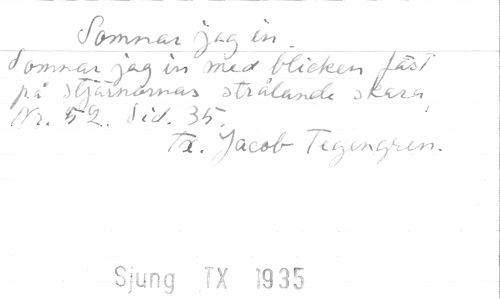 Somnar jag in.
Somnar jag in med blicken fäst
på stjärnornas strålande skara,
Nr. 52. Sid. 35.
Tx. Jacob Tegengren.
Sjung TX 1935